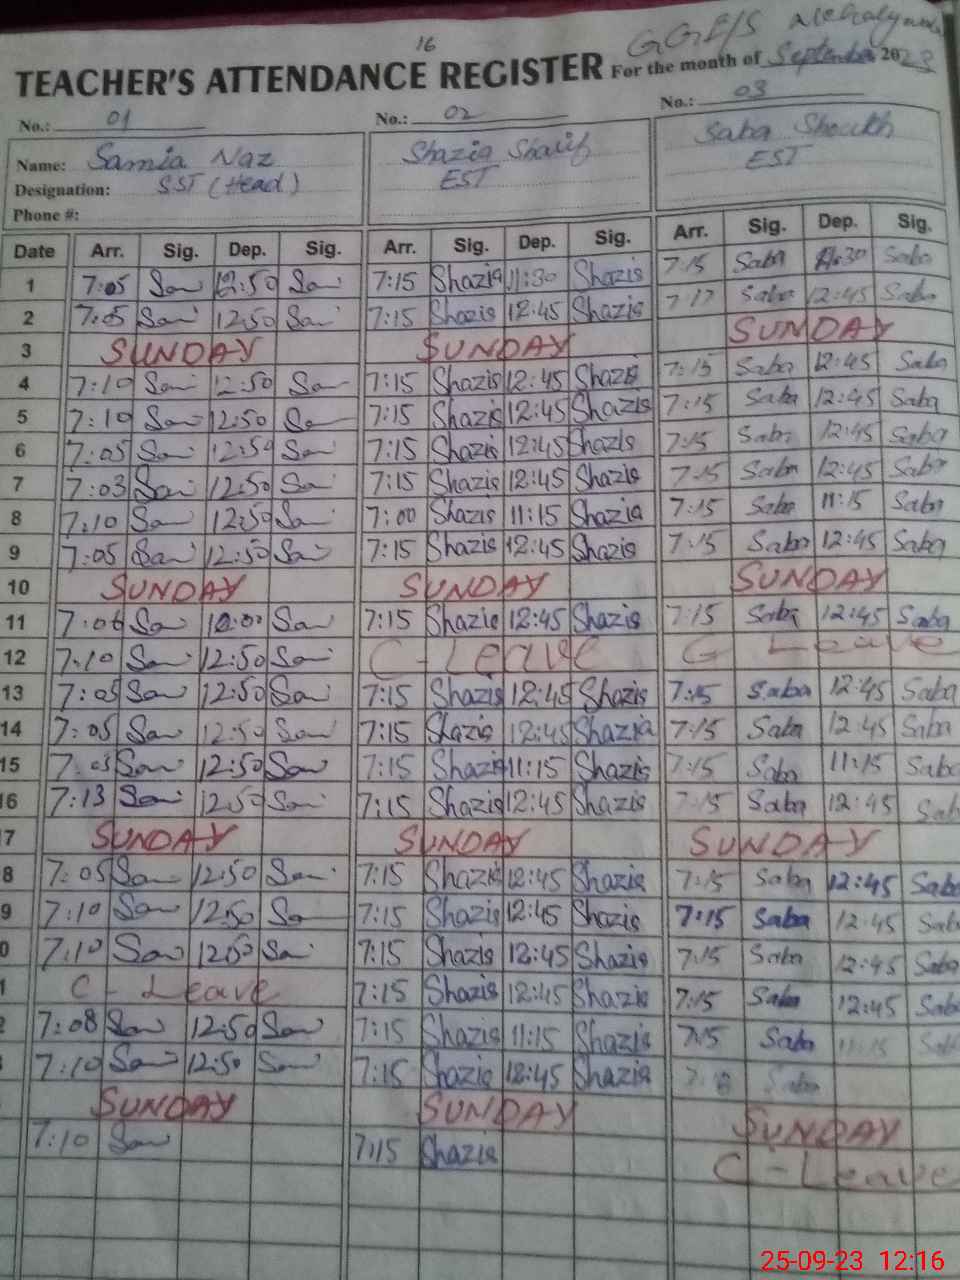 16
GGE/S
TEACHER'S ATTENDANCE REGISTER For the month of September 2023
No.: 01 No.: 02 No.: 03
Name: Samia Naz Shazia Sharif Saba Sheikh
Designation: SST (Head) EST EST
Phone #:
Date Arr. Sig. Dep. Sig. Arr. Sig. Dep. Sig. Arr. Sig. Dep. Sig.
1 7:05 San 12:50 San 7:15 Shazia 11:30 Shazia 7:15 Saba 11:30 Saba
2 7:05 San 12:50 San 7:15 Shazia 12:45 Shazia 7:17 Saba 12:45 Saba
3 SUNDAY SUNDAY SUNDAY
4 7:10 San 12:50 San 7:15 Shazia 12:45 Shazia 7:15 Saba 12:45 Saba
5 7:10 San 12:50 San 7:15 Shazia 12:45 Shazia 7:15 Saba 12:45 Saba
6 7:05 San 12:50 San 7:15 Shazia 12:45 Shazia 7:15 Saba 12:45 Saba
7 7:03 San 12:50 San 7:15 Shazia 12:45 Shazia 7:15 Saba 12:45 Saba
8 7:10 San 12:50 San 7:00 Shazia 11:15 Shazia 7:15 Saba 11:15 Saba
9 7:05 San 12:50 San 7:15 Shazia 12:45 Shazia 7:15 Saba 12:45 Saba
10 SUNDAY SUNDAY SUNDAY
11 7:06 San 10:00 San 7:15 Shazia 12:45 Shazia 7:15 Saba 12:45 Saba
12 7:10 San 12:50 San C-Leave C Leave
13 7:05 San 12:50 San 7:15 Shazia 12:45 Shazia 7:15 Saba 12:45 Saba
14 7:05 San 12:50 San 7:15 Shazia 12:45 Shazia 7:15 Saba 12:45 Saba
15 7:03 San 12:50 San 7:15 Shazia 11:15 Shazia 7:15 Saba 11:15 Saba
16 7:13 San 12:50 San 7:15 Shazia 12:45 Shazia 7:15 Saba 12:45 Sab
7 SUNDAY SUNDAY SUNDAY
8 7:05 San 12:50 San 7:15 Shazia 12:45 Shazia 7:15 Saba 12:45 Saba
9 7:10 San 12:50 San 7:15 Shazia 12:45 Shazia 7:15 Saba 12:45 Sab
0 7:10 San 12:50 San 7:15 Shazia 12:45 Shazia 7:15 Saba 12:45 Saba
1 C - Leave 7:15 Shazia 12:45 Shazia 7:15 Saba 12:45 Saba
2 7:08 San 12:50 San 7:15 Shazia 11:15 Shazia 7:15 Saba 11:15 Sab
7:10 San 12:50 San 7:15 Shazia 12:45 Shazia Saba
SUNDAY SUNDAY SUNDAY
7:10 San 7:15 Shazia C-Leave
25-09-23 12:16